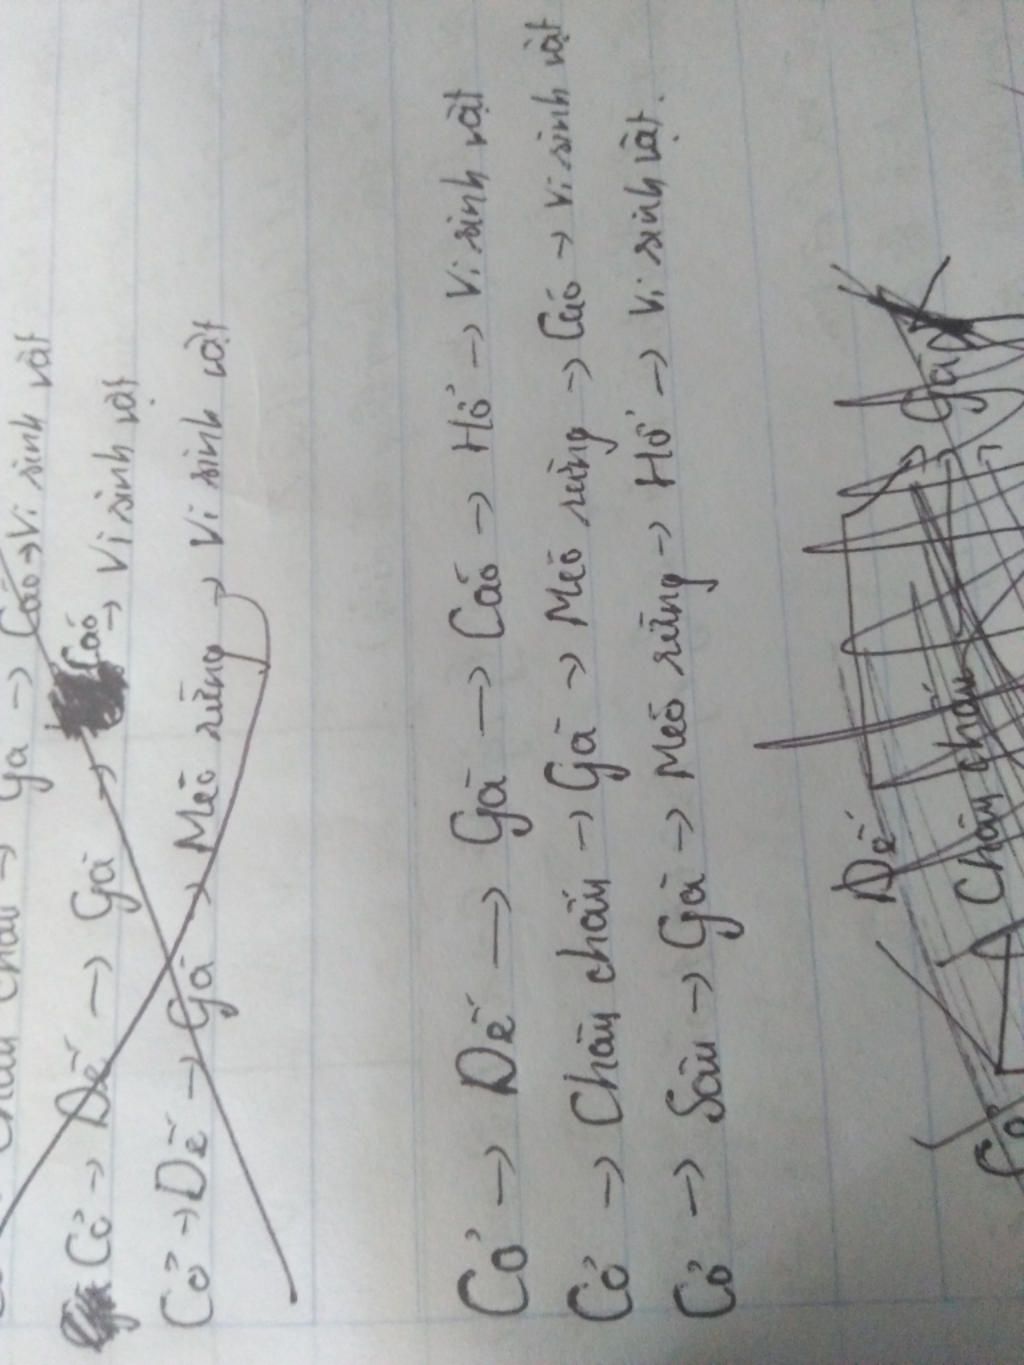 Châu chấu → Gà → Cáo → Vi sinh vật
Cỏ → Dế → Gà → Cáo → Vi sinh vật
Cỏ → Dế → Gà → Mèo rừng → Vi sinh vật
Cỏ → Dế → Gà → Cáo → Hổ → Vi sinh vật
Cỏ → Châu chấu → Gà → Mèo rừng → Cáo → Vi sinh vật
Cỏ → Sâu → Gà → Mèo rừng → Hổ → Vi sinh vật.
Dế
Châu chấu Gà
Cỏ